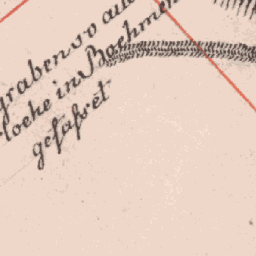 graben so aus
loche in Boehmen
gefasset